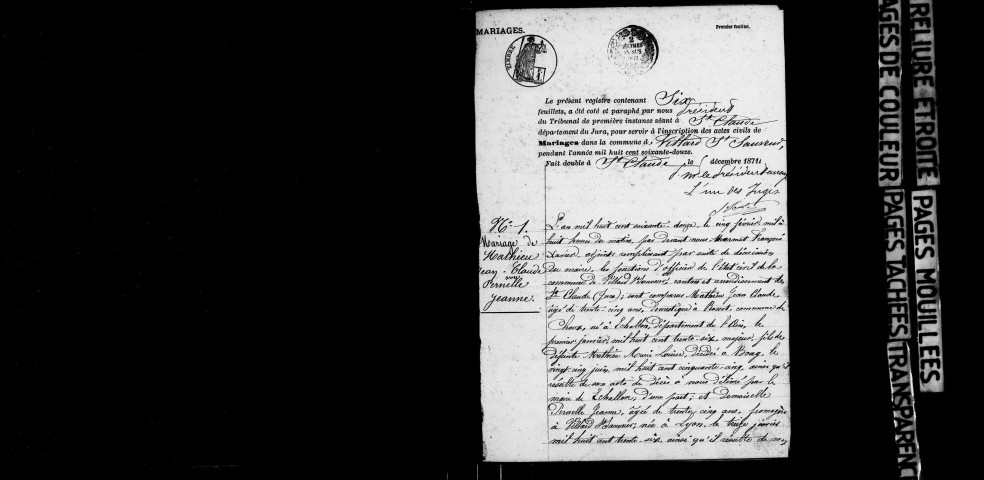 MARIAGES.
Premier feuillet.
TIMBRE
2
Le présent registre contenant Six
feuillets, a été coté et paraphé par nous Président
du Tribunal de première instance séant à St Claude
département du Jura, pour servir à l'inscription des actes civils de
Mariages dans la commune d Villard St Sauveur,
pendant l'année mil huit cent soixante-douze.
Fait double à St Claude le décembre 1871.
le Président
L'un des Juges
No 1.
Mariage de
Mathieu
Jean-Claude
Pernelle
Jeanne.
L'an mil huit cent soixante-douze, le cinq février, mil à
huit heures du matin, par devant nous Mermet François
Xavier, adjoint remplissant par suite de démission
du maire, les fonctions d'officier de l'état civil de la
commune de Villard St Sauveur, canton et arrondissement de
St Claude (Jura); sont comparus Mathieu Jean Claude
âgé de trente-cinq ans, domestique à commune de
Choux, né à Echallon, département de l'Ain, le
premier janvier mil huit cent trente-six, majeur, fils de
défunte Mathieu Marie Louise, décédée à Bourg, le
vingt-cinq juin, mil huit cent cinquante-cinq, ainsi qu'il
résulte de son acte de décès à nous délivré par le
maire de Echallon, d'une part; et demoiselle
Pernelle Jeanne, âgée de trente-cinq ans,
à Villard St Sauveur, née à Lyon, le treize janvier
mil huit cent trente-six, ainsi qu'il résulte de son
RELIURE ETROITE
PAGES DE COULEUR
PAGES MOUILLEES
PAGES TACHEES
TRANSPARENC